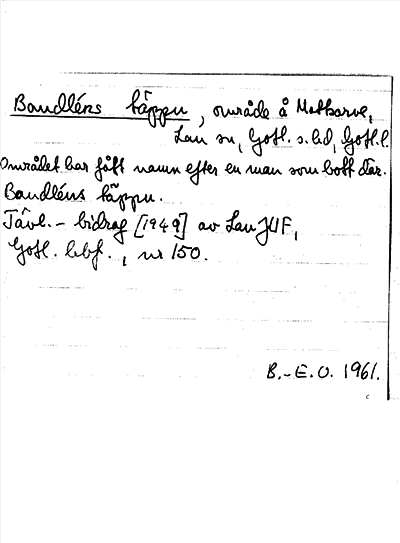 Bandléns täppu, område å Mattarve,
Lau sn, Gotl. s. hd, Gotl. l.
Området har fått namn efter en man som bott där.
Bandléns täppu.
Tävl.- bidrag [1949] av Lau JUF,
Gotl. hbf., nr 150.
B.-E.O. 1961.